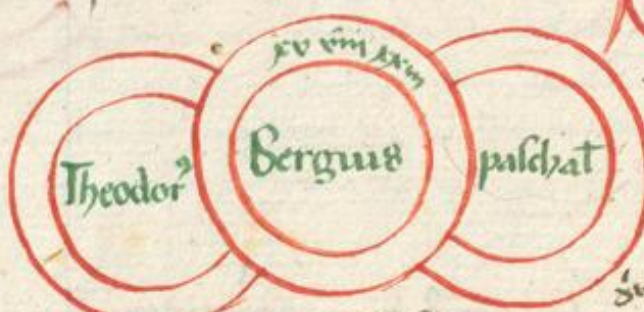 xv viii xxiii
Theodorꝰ Sergius paschaƚ